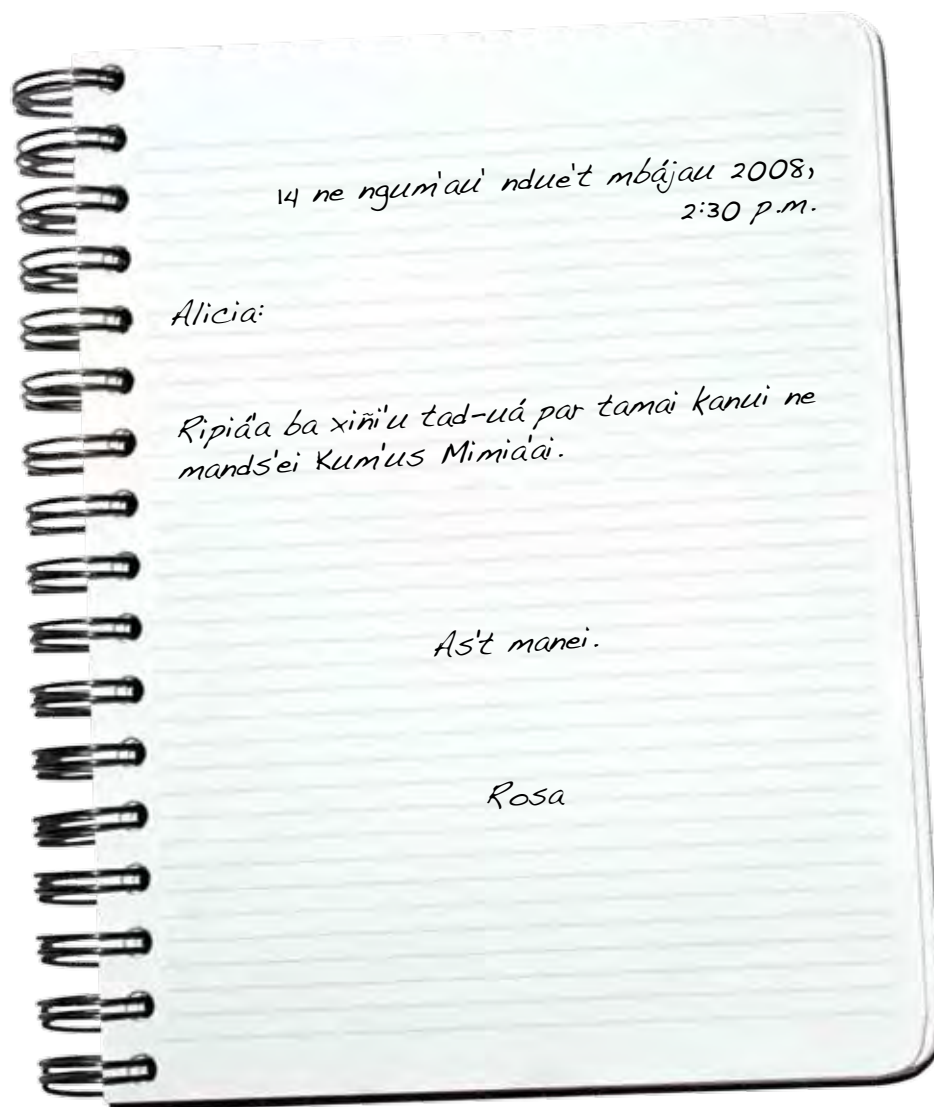 14 ne ngum'au' ndue't mbájau 2008,
2:30 p.m.
Alicia:
Ripiá'a ba xiñi'u tad-uá par tamai kanui ne
mands'ei Kum'us Mimiá'ai.
As't manei.
Rosa